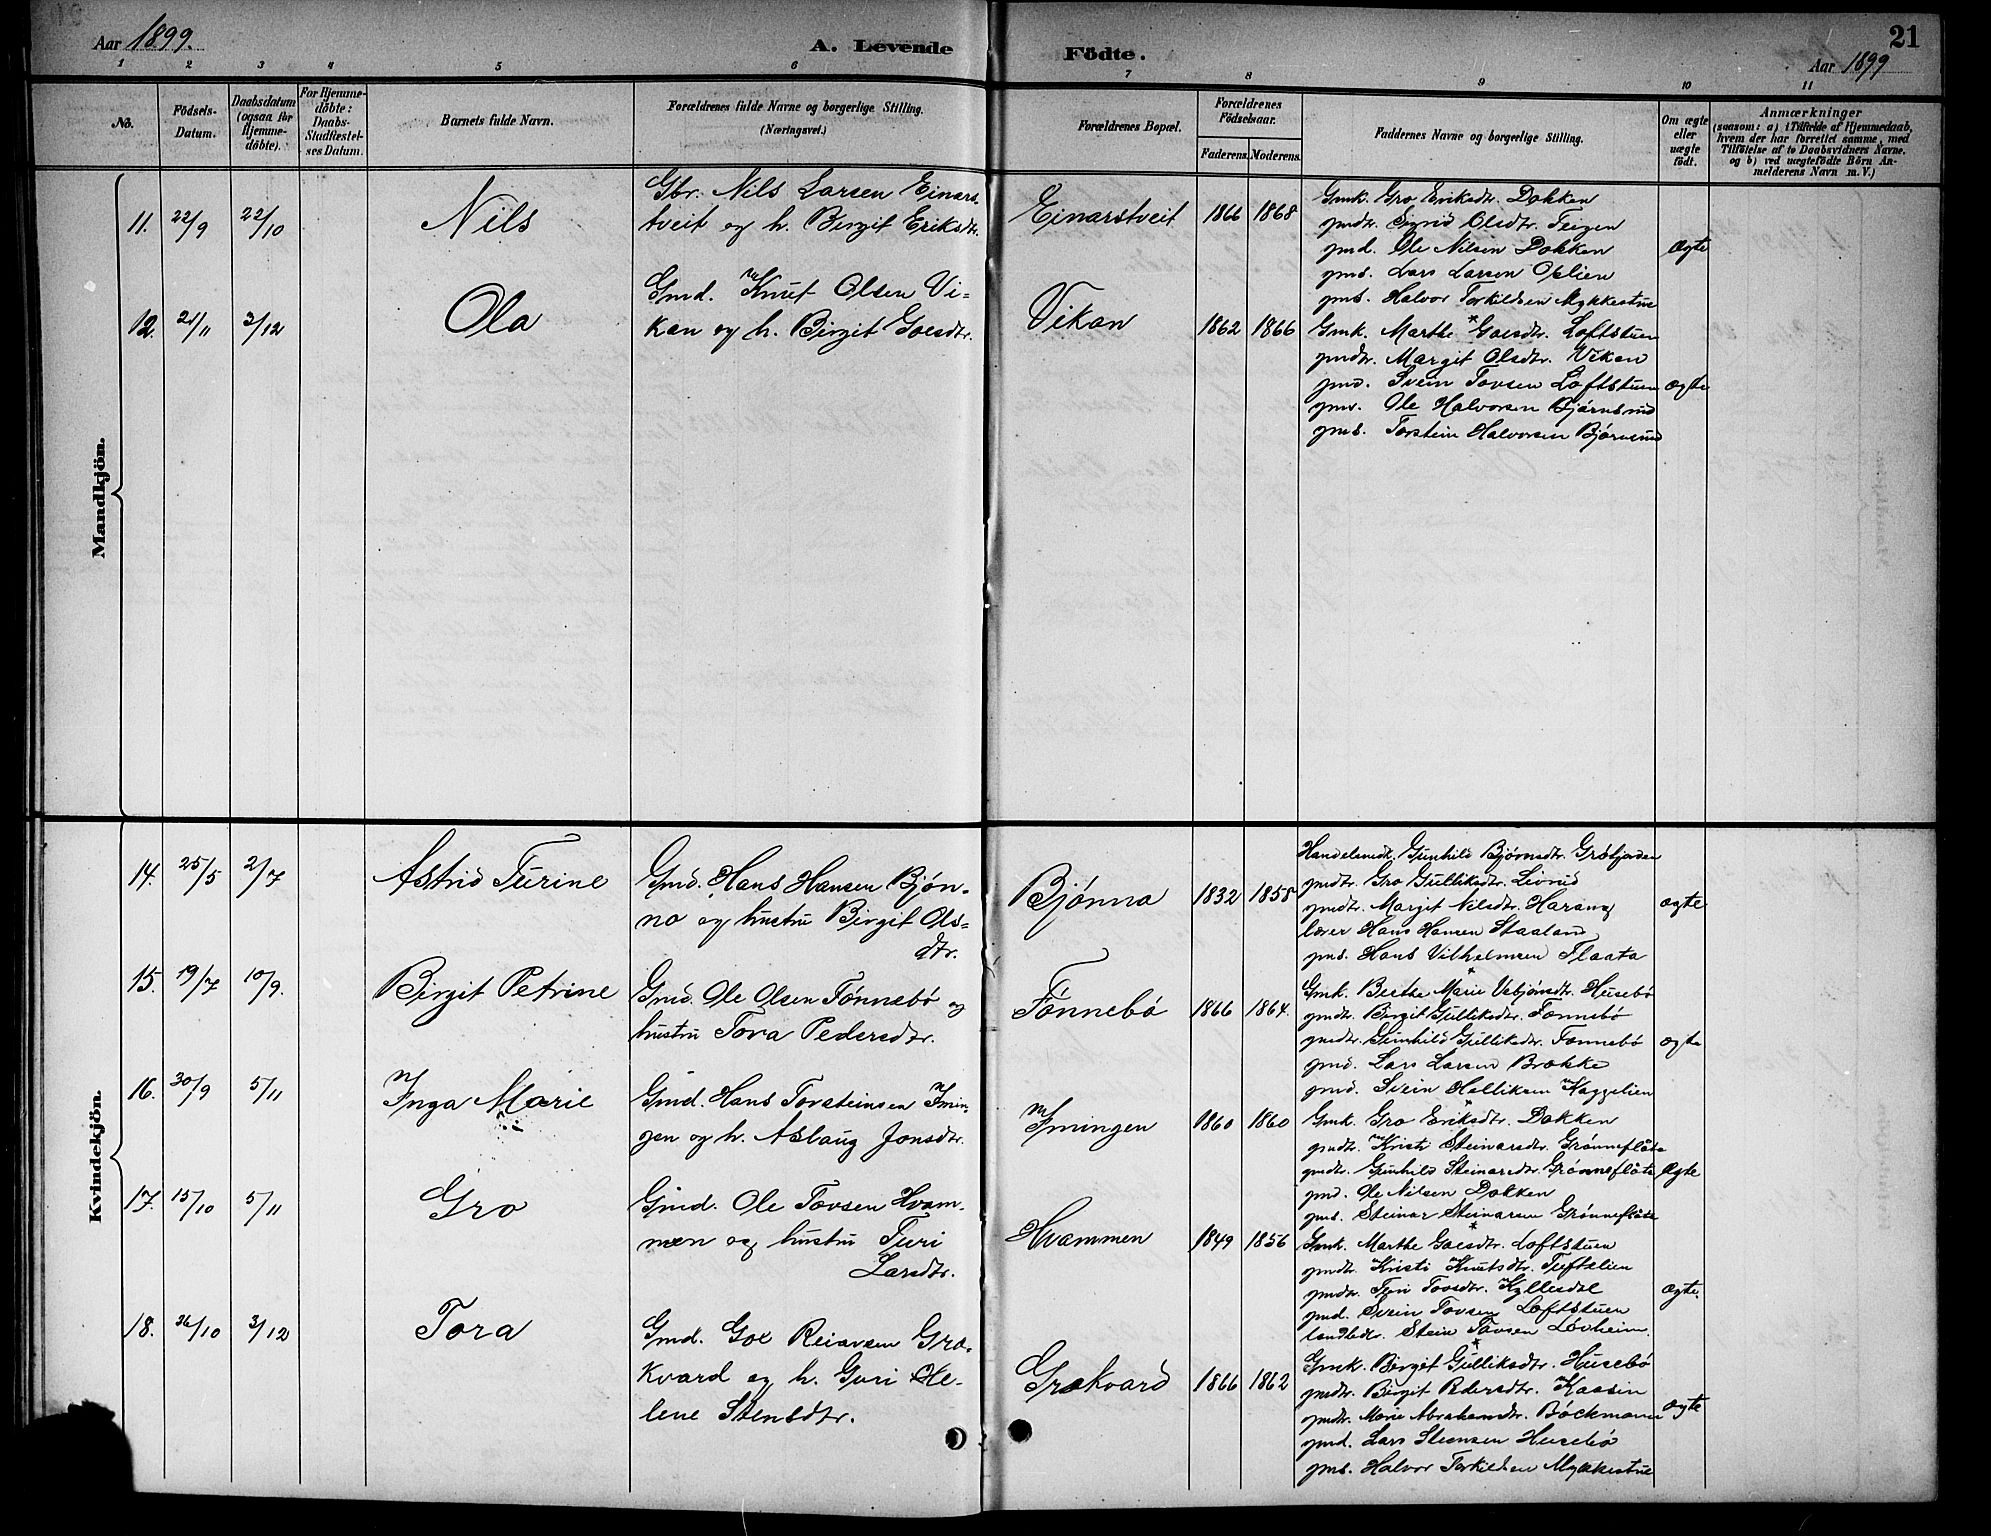 Aar 1899.
A. Levende
Födte.
21
Aar 1899
1 2 3 4 5 6 7 8 9 10 11
No.
Födsels-
Datum.
Daabsdatum
(ogsaa for
Hjemme-
döbte).
For Hjemme-
döbte:
Daabs-
Stadfæstel-
ses Datum.
Barnets fulde Navn.
Forældrenes fulde Navne og borgerlige Stilling.
(Næringsvei.)
Forældrenes Bopæl.
Forældrenes
Födselsaar.
Faderens. Moderens.
Faddernes Navne og borgerlige Stilling.
Om ægte
eller
uægte
födt.
Anmærkninger
(saasom: a) i Tilfælde af Hjemmedaab,
hvem der har forrettet samme, med
Tilföielse af to Daabsvidners Navne.
og b) ved uægtefödte Börn An-
melderens Navn m. V.)
Mandkjön.
11. 22/9 22/10
Nils
Gbr. Nils Larsen Einars-
tveit og h. Birgit Eriksdtr.
Einarstveit
1866 1868
Gmk. Gro Eriksdtr. Dokken
pmdtr. Sigrid Olsdtr. Teigen
pmd. Ole Nilsen Dokken
pms. Lars Larsen Oslien
pms. Halvor Torkildsen Mykkestue
Ægte
12. 21/11 3/12
Ola
Gmd. Knut Olsen Vi-
kan og h. Birgit Goesdtr.
Vikan
1862 1866
Gmk. Marthe Goesdtr. Loftstuen
pmdtr. Margit Olsdtr. Vikan
pmd. Svein Tovsen Loftstuen
pms. Ole Halvorsen Bjørnsrud
pms. Torstein Halvorsen Bjørnsrud
ægte
Kvindekjön.
14. 25/5 2/7
Astrid Turine
Gmd. Hans Hansen Bjøn-
no og hustru Birgit Ols-
dtr.
Bjønno
1832 1858
Handelsmdk. Gunhild Bjørnsdtr. Grøbjorden
pmdtr. Gro Gulliksdtr. Livrud
pmdtr. Margit Nilsdtr. Haraug
lærer Hans Hansen Staaland
pms. Hans Vilhelmsen Flaata
ægte
15. 19/7 10/9.
Birgit Petrine
Gmd. Ole Olsen Fønnebø og
hustru Tora Pedersdtr.
Fønnebø
1866 1864.
Gmk. Berthe Marie Vebjønsdtr. Husebø
pmdtr. Birgit Gulliksdtr. Fønnebø
pmdtr. Gunhild Gulliksdtr. Fønnebø
pmd. Lars Larsen Brokke
pmd. Svein Helliksen Kaggelien
ægte
16. 30/9 5/11
Inga Marie
Gmd. Hans Torsteinsen Imin-
gen og h. Aslaug Jonsdtr.
Imingen
1860 1860
Gmk. Gro Eriksdtr. Dokken
pmdtr. Kristi Steinarsdtr. Grønneflåta
pmdtr. Gunhild Steinarsdtr. Grønneflåta
pmd. Ole Nilsen Dokken
pms. Steinar Steinarsen Grønneflåta
Ægte
17. 15/10 5/11
Gro
Gmd. Ole Tovsen Hvam-
men og hustru Turi
Larsdtr.
Hvammen
1849 1856
Gmk. Marthe Goesdtr. Loftstuen
pmdtr. Kristi Knutsdtr. Tuftelien
pmdtr. Turi Tovsdtr. Kyllesdal
pmd. Svein Tovsen Loftstuen
landbdr. Stein Tovsen Løvheim.
Ægte.
18. 26/10 3/12
Tora
Gmd. Goe Reiarsen Græ-
kvard og h. Guri He-
lene Stensdtr.
Grækvard
1866 1862
Gmk. Birgit Gulliksdtr. Husebø
pmdtr. Birgit Pedersdtr. Kaasin
pmdtr. Marie Abrahamsdtr. Bøckmann
pmd. Lars Steensen Husebø
pms. Halvor Torkildsen Mykkestue
ægte